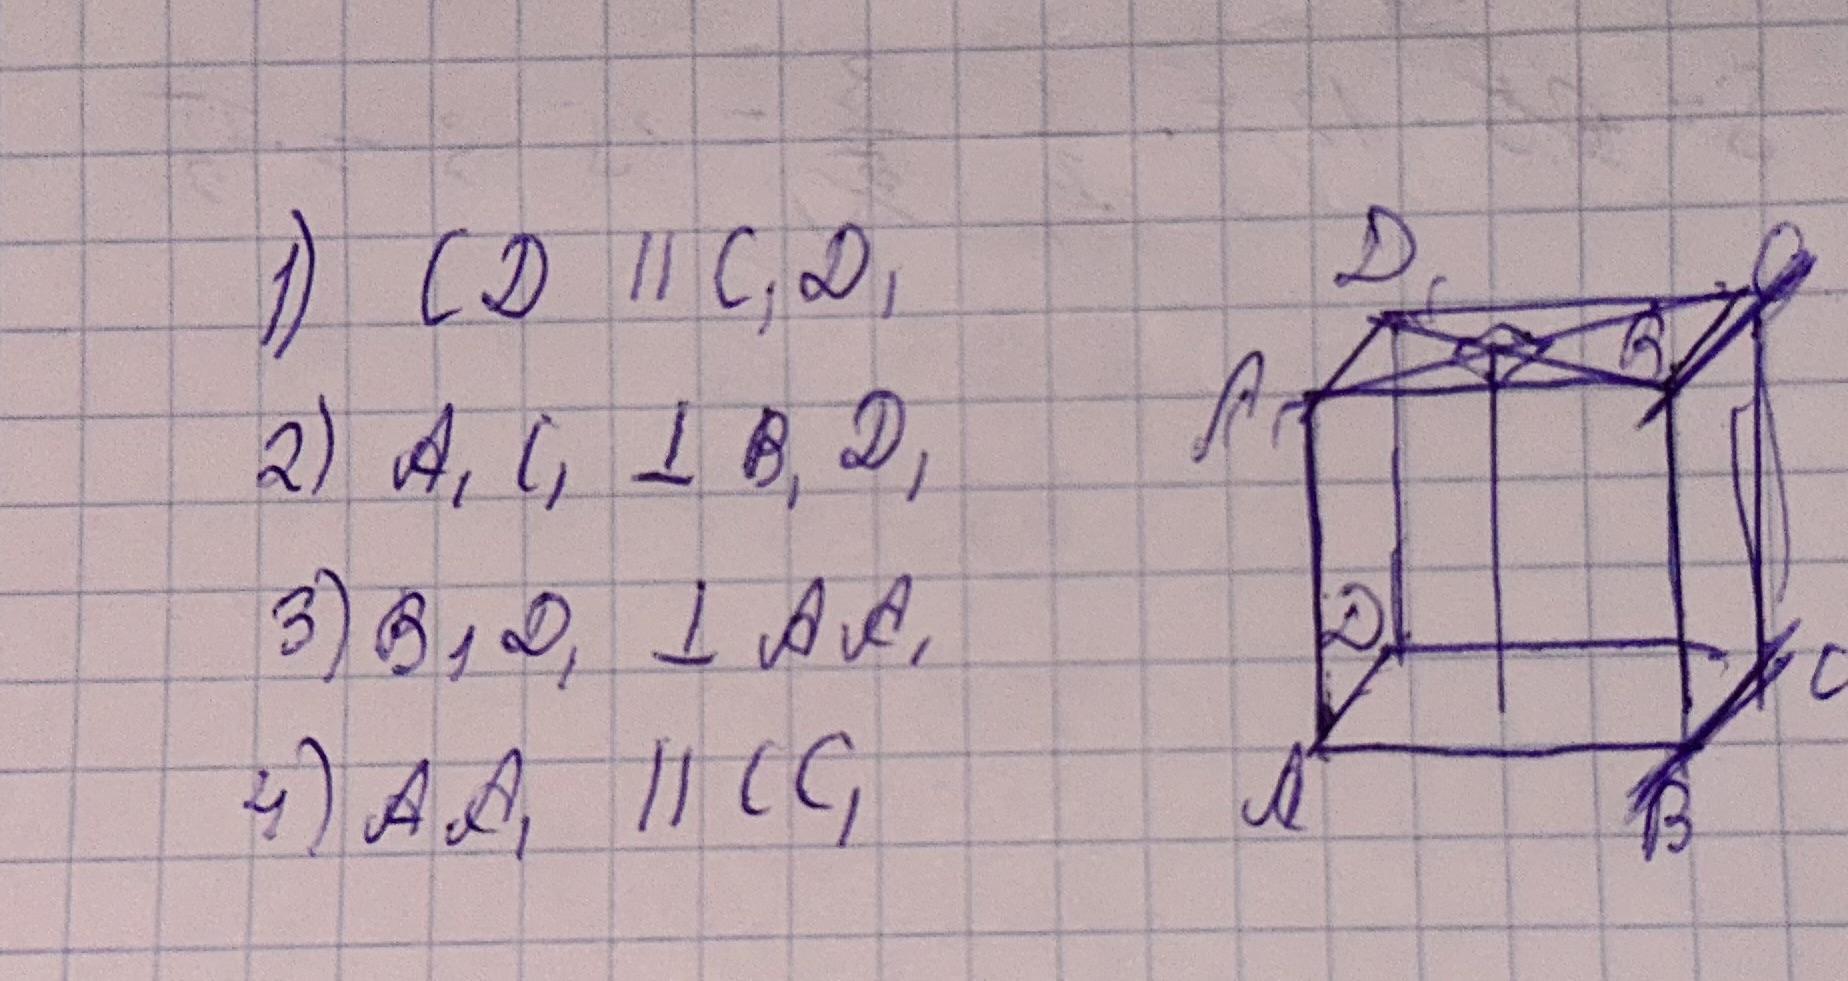 1) CD || C₁D₁
2) A₁C₁ ⊥ B₁D₁
3) B₁D₁ ⊥ AA₁
4) AA₁ || CC₁
D₁ C
A₁ B₁
D C
A B